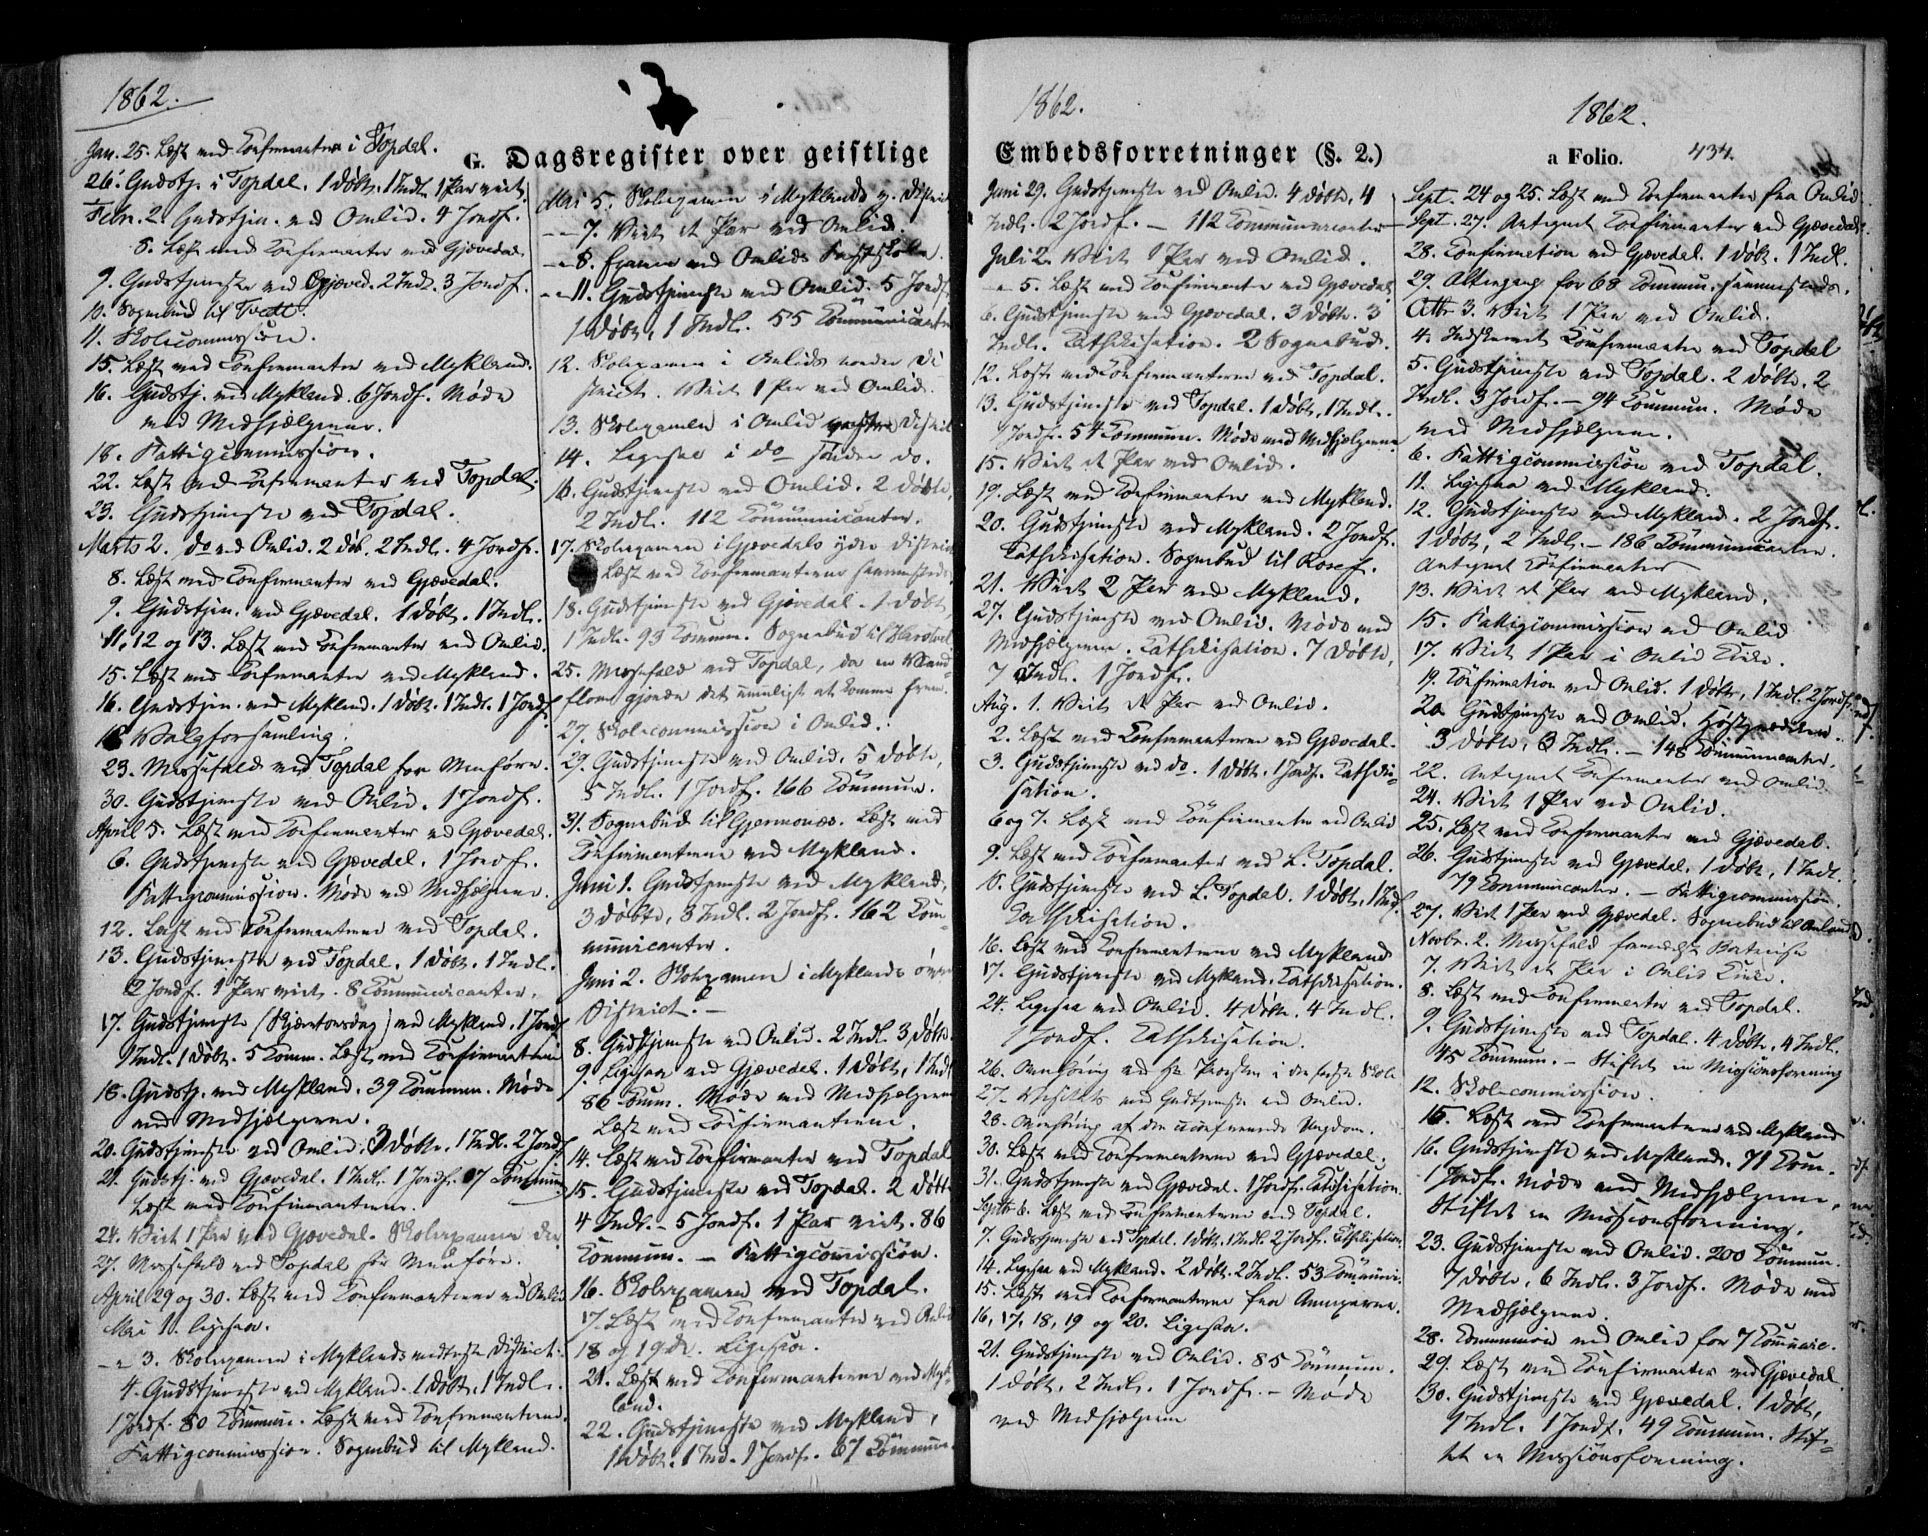 1862.
G. Dagsregister over geistlige
Jan. 25. Læst med Confirmanter i Topdal.
26. Gudstj. i Topdal. 1 døbt. 1 Indl. 1 Par viet.
Febr. 2. Gudstjen. ved Omlid. 4 Jordf.
8. Læst med Confirmanter ved Gjævedal.
9. Gudstjeneste ved Gjæved. 2 Indl. 3 Jordf.
10. Sognebud til Tvedt.
11. Skolecommission.
15. Læst med Confirmanter ved Mykland.
16. Gudstj. ved Mykland. 6 Jordf. Møde
med Medhjælperne.
18. Fattigcommission.
22. Læst med Confirmanter ved Topdal.
23. Gudstjeneste ved Topdal.
Marts 2. do ved Omlid. 2 døb. 2 Indl. 4 Jordf.
8. Læst med Confirmanter ved Gjævedal.
9. Gudstjen. ved Gjævedal. 1 døbt. 1 Indl.
11, 12 og 13. Læst med Confirmanter ved Omlid.
15. Læst med Confirmanter ved Mykland.
16. Gudstjen. ved Mykland. 1 døbt. 1 Indl. 1 Jordf.
18 Valgforsamling.
23. Messefald ved Topdal for Menføre.
30. Gudstjeneste ved Omlid. 1 Jordf.
April 5. Læst med Confirmanter ved Gjævedal.
6. Gudstjeneste ved Gjævedal. 1 Jordf.
Fattigcommission. Møde med Medhjelperne.
12. Læst med Confirmanterne ved Topdal.
13. Gudstjeneste ved Topdal. 1 døbt. 1 Indl.
2 Jordf. 1 Par viet. 8 Communicanter.
17. Gudstjeneste (Skjærtorsdag) ved Mykland. 1 Jordf
1 Indl. 1 døbt. 5 Comm. Læst med Confirmanterne
18. Gudstj. ved Mykland. 39 Commun. Møde
med Medhjelperne.
20. Gudstjeneste ved Omlid. 3 døbte. 1 Indl. 2 Jordf.
21. Gudstj. ved Gjævedal. 1 Indl. 1 Jordf. 7 Commun.
Læst med Confirmanterne.
24. Viet 1 Par ved Gjævedal. Skoleexamen der
27. Messefald ved Topdal for Menføre.
April 29 og 30. Læst med Confirmanterne ved Omlid
Mai 1. ligesaa.
— 3. Skoleexamen i Myklands nederste District.
4. Gudstjeneste ved Mykland. 1 døbt, 1 Indl.
1 Jordf. 80 Commun. Læst med Confirmanterne.
Fattigcommission. Sognebud til Mykland.
Mai 5. Skoleexamen i Myklands y. District
— 7. Viet et Par ved Omlid.
— 8. Examen ved Omlids Fastskole.
— 11. Gudstjeneste ved Omlid. 5 Jordf
1 døbt. 1 Indl. 55 Communicanter
12. Skoleexamen i Omlids nordre Di
strict. Viet 1 Par ved Omlid.
13. Skoleexamen i Omlid vestre District
14. Ligesaa i do søndre do.
18. Gudstjeneste ved Omlid. 2 døbte,
2 Indl. 112 Communicanter.
17. Skoleexamen i Gjævedals ydre District
Læst med Confirmanterne sammesteds.
18. Gudstjeneste ved Gjævedal. 1 døbt
1 Indl. 93 Commun. Sognebud til
25. Messefald ved Topdal, da en Vand-
flom gjorde det umuligt at komme frem.
27. Skolecommission i Omlid.
29. Gudstjeneste ved Omlid. 5 døbte,
5 Indl. 1 Jordf. 166 Commun.
31. Sognebud til Gjermonæs. Læst med
Confirmanterne ved Mykland.
Juni 1. Gudstjeneste ved Mykland,
3 døbte, 3 Indl. 2 Jordf. 162 Com-
municanter.
Juni 2. Skoleexamen i Myklands øvre
District.
8. Gudstjeneste ved Omlid. 2 Indl. 3 døbte.
9. Ligesaa ved Gjævedal. 1 døbt, 1 Indl
86 Comm. Møde med Medhjelperne
Læst med Confirmanterne.
14. Læst med Confirmanter ved Topdal
15. Gudstjeneste ved Topdal. 2 døbte
4 Indl. 5 Jordf. 1 Par viet. 86
Commun. — Fattigcommission.
16. Skoleexamen ved Topdal.
17. Læst med Confirmanter ved Omlid
18 og 19de. Ligesaa.
21. Læst med Confirmanterne ved Myk-
land.
22. Gudstjeneste ved Mykland,
1 døbt. 1 Ind. 1 Jordf. 67 Commun.
1862. 1862.
Embedsforretninger (§. 2.) a Folio. 434.
Juni 29. Gudstjeneste ved Omlid. 4 døbte, 4
Indl. 2 Jordf. — 112 Communicanter
Juli 2. Viet 1 Par ved Omlid.
— 5. Læst med Confirmanter ved Gjævedal
6. Gudstjeneste ved Gjævedal. 3 døbte. 3
Indl. Cathekisation. 2 Sognebud.
12. Læst med Confirmanterne ved Topdal.
13. Gudstjeneste ved Topdal. 1 døbt, 1 Indl.
1 Jordf. 54 Commun. Møde med Medhjelperne
15. Viet et Par ved Omlid.
19. Læst med Confirmanter ved Mykland.
20. Gudstjeneste ved Mykland. 2 Jordf.
Cathekisation. Sognebud til
21. Viet 2 Par ved Mykland.
27. Gudstjeneste ved Omlid. Møde med
Medhjelperne. Cathekisation. 7 døbte,
7 Indl. 1 Jordf.
Aug. 1. Viet et Par ved Omlid.
2. Læst med Confirmanterne ved Gjævedal.
3. Gudstjeneste ved do. 1 døbt, 1 Jordf. Catheki-
sation.
6 og 7. Læst med Confirmanter ved Omlid
9. Læst med Confirmanter ved L. Topdal.
Gudstjeneste ved L. Topdal. 1 døbt, 1 Indl.
Cathekisation.
16. Læst med Confirmanterne ved Mykland
17. Gudstjeneste ved Mykland. Cathekisation.
24. Ligesaa ved Omlid. 4 døbte. 4 Indl.
1 Jordf. Cathekisation.
26. Overhøring ved Hr Provsten i den faste Skole
27. Visitats med Gudstjeneste ved Omlid.
28. Overhøring af den confirmerede Ungdom.
30. Læst med Confirmanterne ved Gjævedal.
31. Gudstjeneste ved Gjævedal. 1 Jordf. Cathekisation.
Septbr 6. Læst med Confirmanterne ved Topdal.
7. Gudstjeneste ved Topdal. 1 døbt. 1 Indl. 2 Jordf. Cathekisation.
14. Ligesaa ved Mykland. 2 døbte. 2 Indl. 53 Communi.
15. Læst med Confirmanterne fra Annexerne.
16, 17, 18, 19 og 20. Ligesaa.
21. Gudstjeneste ved Omlid. 85 Commun.
1 døbt, 2 Indl. 1 Jordf. — Møde
med Medhjelperne
Sept. 24 og 25. Læst med Confirmanter fra Omlid.
Sept. 27. Antegnet Confirmanter ved Gjævedal.
28. Confirmation ved Gjævedal. 1 døbt. 1 Indl.
29. Altergang for 68 Commun. sammesteds.
Octbr 3. Viet 1 Par ved Omlid.
4. Indskrevet Confirmanter ved Topdal
5. Gudstjeneste ved Topdal. 2 døbte, 2
Indl. 3 Jordf. — 94 Commun. Møde
med Medhjelperne.
6. Fattigcommission ved Topdal.
11. Ligesaa ved Mykland.
12. Gudstjeneste ved Mykland. 2 Jordf.
1 døbt, 2 Indl. — 186 Communicanter.
Antegnet Confirmanter
13. Viet et Par ved Mykland.
15. Fattigcommission ved Omlid
17. Viet 1 Par i Omlid Kirke.
19. Confirmation ved Omlid. 1 døbt, 1 Indl. 2 Jordf.
20 Gudstjeneste ved Omlid. Høstprædiken.
3 døbte, 3 Indl. — 148 Communicanter.
22. Antegnet Confirmanter ved Omlid.
24. Viet 1 Par ved Omlid.
25. Læst med Confirmanter ved Gjævedal.
26. Gudstjeneste ved Gjævedal. 1 døbt, 1 Indl.
79 Communicanter. — Fattigcommission.
27. Viet 1 Par ved Gjævedal. Sognebud til
Novbr. 2. Messefald
7. Viet et Par i Omlid Kirke.
8. Læst med Confirmanter ved Topdal.
9. Gudstjeneste ved Topdal. 4 døbte, 4 Indl.
45 Commun. — Stiftet en Missionsforening
12. Skolecommission.
15. Læst med Confirmanterne ved Mykland
16. Gudstjeneste ved Mykland. 71 Com.
1 Jordf. Møde med Medhjelperne.
Stiftet en Missionsforening.
23. Gudstjeneste ved Omlid. 200 Commun.
7 døbte, 6 Indl. 3 Jordf. Møde med
Medhjelperne.
28. Communion ved Omlid for 7 Communic.
29. Læst med Confirmanter ved Gjævedal
30. Gudstjeneste ved Gjævedal. 1 døbt,
1 Indl. 1 Jordf. 49 Commun. Stif-
tet en Missionsforening.